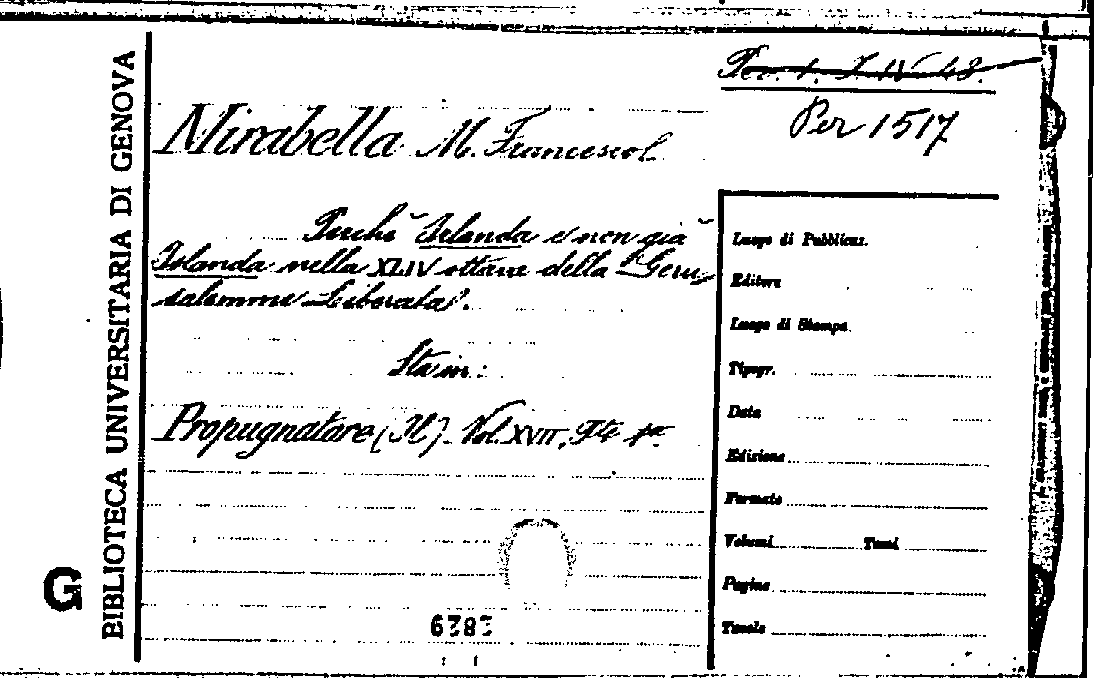 BIBLIOTECA UNIVERSITARIA DI GENOVA
G
Per 1517
Mirabella M. Francesco
Perchè Irlanda e non già
Islanda nella XLIV ottava della "Geru-
salemme Liberata".
Sta in:
Propugnatore (Il) Vol. XVII, Pte 1a
Luogo di Pubblicaz.
Editore
Luogo di Stampa
Tipogr.
Data
Edizione
Formato
Volumi Tomi
Pagine
Tavole